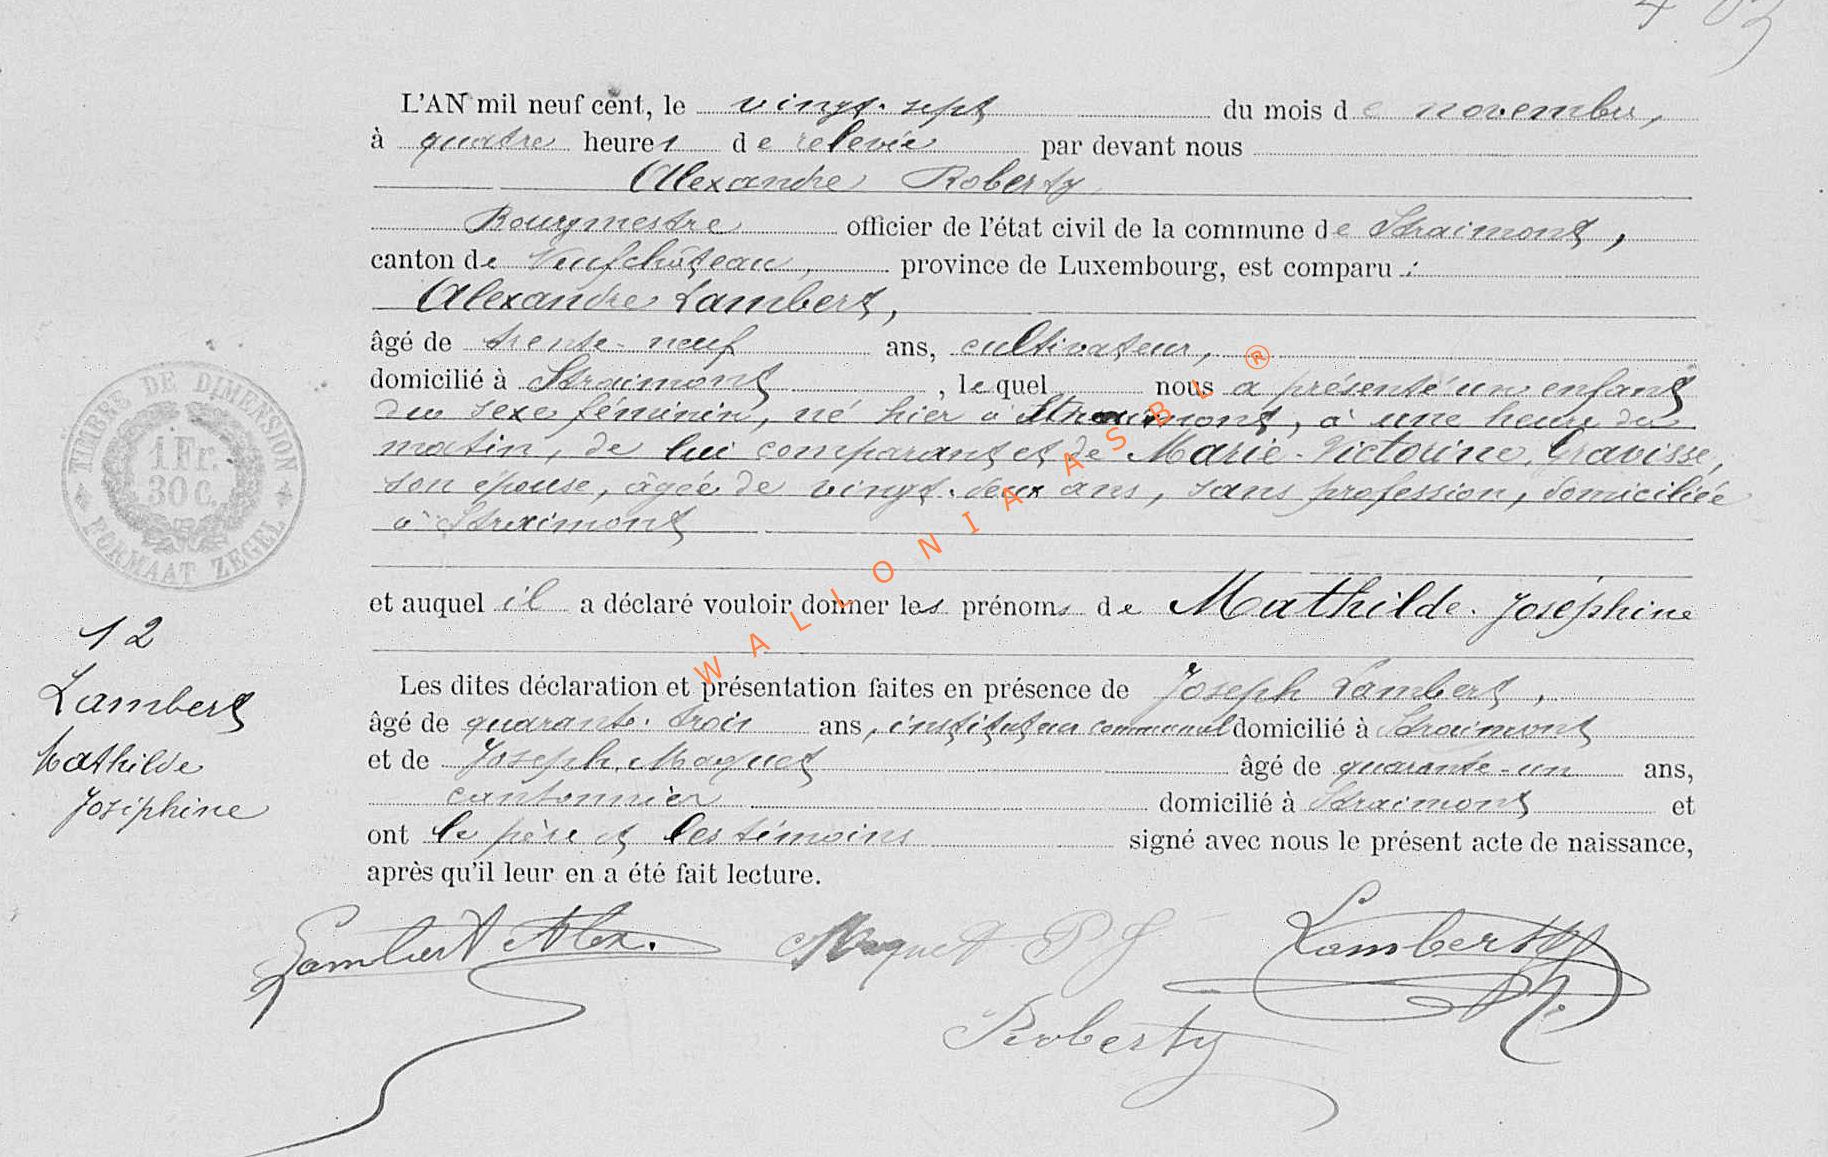 403
L'AN mil neuf cent, le vingt-sept du mois de novembre,
à quatre heures de relevée par devant nous
Alexandre Roberty
Bourgmestre officier de l'état civil de la commune de Straimont,
canton de Neufchâteau, province de Luxembourg, est comparu :
Alexandre Lambert,
âgé de trente-neuf ans, cultivateur,
domicilié à Straimont, lequel nous a présenté un enfant
du sexe féminin, né hier à Straimont, à une heure du
matin, de lui comparant et de Marie-Victorine Gravisse,
son épouse, âgée de vingt-deux ans, sans profession, domiciliée
à Straimont
et auquel il a déclaré vouloir donner les prénoms de Mathilde-Joséphine
Les dites déclaration et présentation faites en présence de Joseph Lambert,
âgé de quarante-trois ans, instituteur communal domicilié à Straimont
et de Joseph Maquet âgé de quarante-un ans,
cantonnier domicilié à Straimont et
ont le père et les témoins signé avec nous le présent acte de naissance,
après qu'il leur en a été fait lecture.
TIMBRE DE DIMENSION
1 Fr.
30 c.
FORMAAT ZEGEL
12
Lambert
Mathilde
Joséphine
Lambert Alex.
Maquet P J
Lambert
Roberty
WALLONIA ASBL ®